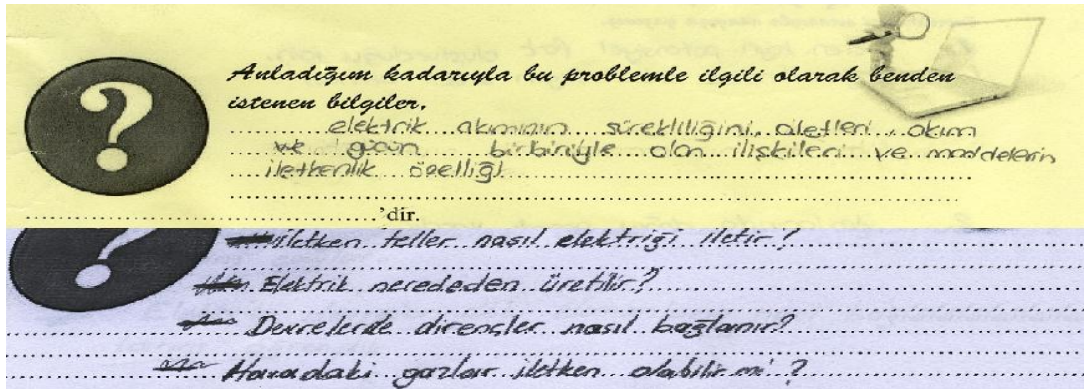 Anladığım kadarıyla bu problemle ilgili olarak benden
istenen bilgiler,
elektrik akımının sürekliliğini, aletleri akım
ve gücün birbiriyle olan ilişkileri ve maddelerin
iletkenlik özelliği
'dir.
iletken teller nasıl elektriği iletir?
Elektrik nerededen üretilir?
Devrelerde dirençler nasıl bağlanır?
Havadaki gazlar iletken olabilir mi?